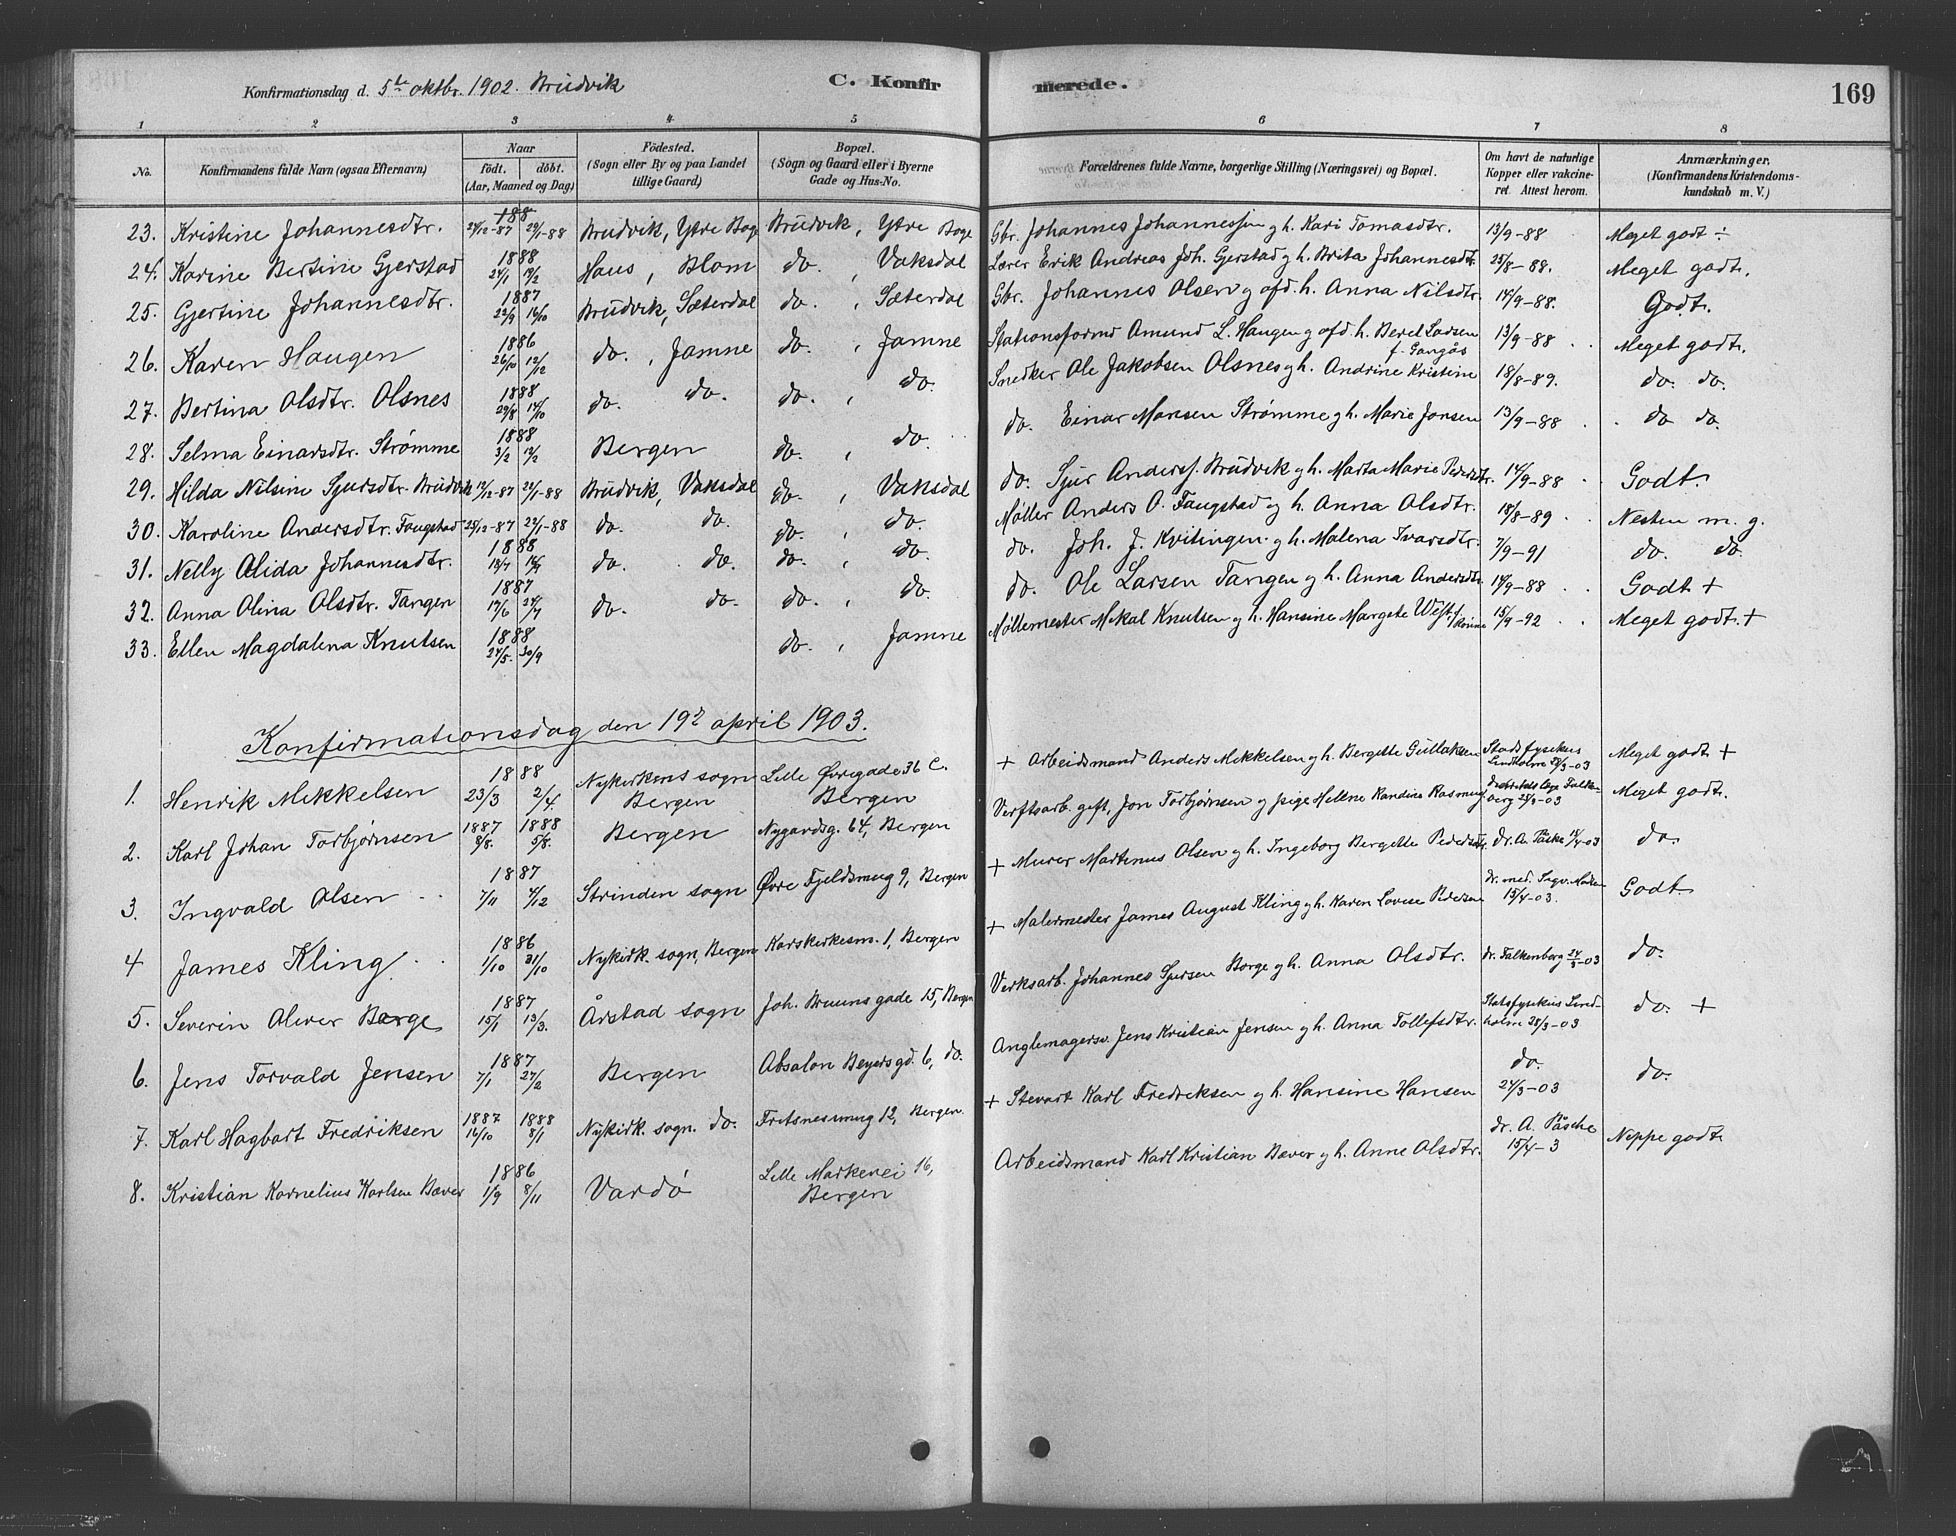 Konfirmationsdag d. 5te oktbr. 1902. Brudvik
C. Konfirmerede.
169
1 2 3 4 5 6 7 8
No. Konfirmandens fulde Navn (ogsaa Efternavn) Naar födt. döbt. (Aar, Maaned og Dag) Födested. (Sogn eller By og paa Landet tillige Gaard) Bopæl. (Sogn og Gaard eller i Byerne Gade og Hus-No. Forældrenes fulde Navne, borgerlige Stilling (Næringsvei) og Bopæl. Om havt de naturlige Kopper eller vakcineret. Attest herom. Anmærkninger. (Konfirmandens Kristendomskundskab m. V.)
23. Kristine Johannesdtr. 24/12-87 29/1-88 Brudvik, Ytre Boge Brudvik, Ytre Boge Gbr. Johannes Johannessen g h. Kari Tomasdtr. 13/9-88 Meget godt ÷
24. Karine Bertine Gjerstad 1888 24/1 19/2 Haus, Blom do. , Vaksdal Lærer Erik Andreas Joh. Gjerstad g h. Brita Johannesdtr. 25/8-88. Meget godt.
25. Gjertine Johannesdtr. 1887 22/9 16/10 Brudvik, Sæterdal do. , Sæterdal Gbr. Johannes Olsen g afd. h. Anna Nilsdtr. 14/9-88. Godt.
26. Karen Haugen 1886 26/10 12/12 do. , Jamne do. , Jamne Stationsformd Amund L. Haugen g afd h. Beret Larsen f. Gangås 13/9-88 Meget godt.
27. Bertina Olsdtr. Olsnes 1888 29/8 14/10 do. do. do. , do. Snedker Ole Jakobsen Olsnes g h. Andrine Kristine 18/8-89. do. do.
28. Selma Einarsdtr. Strømme 1888 3/2 19/2 Bergen do. , do. do. Einar Monsen Strømme g h. Marie Jonsen 13/9-88 do do.
29. Hilda Nilsine Sjursdtr. Brudvik 12/12-87 22/1-88 Brudvik, Vaksdal do. , Vaksdal do. Sjur Anderss. Brudvik g h. Marta Marie Pedersdtr. 14/9-88 Godt.
30. Karoline Andersdtr. Fangstad 25/12-87 22/1-88 do. do. do. , do. Møller Anders O. Fangstad g h. Anna Olsdtr. 18/8-89 Nesten m. g.
31. Nelly Olida Johannesdtr. 1888 do. do. do. , do. do. Joh. J. Kvitingen g h. Malena Ivarsdtr. 7/9-91 do. do.
32. Anna Olina Olsdtr. Tangen 1887 17/6 24/7 do. do. do. , do. do. Ole Larsen Tangen g h. Anna Andersdtr. 14/9-88 Godt +
33. Ellen Magdalena Knutsen 1888 24/5. 30/9 do. , Jamne Møllemester Mekal Knutsen g h. Hansine Margrete 15/9-92 Meget godt. +
Konfirmationsdag den 19de april 1903.
1. Henrik Mekkelsen 1888 23/3 2/4. Nykirkens sogn Bergen Lille Øvregade 36 C. Bergen + Arbeidsmand Anders Mekkelsen g h. Bergitte Gullaksen Stadsfysekus Lindholm 28/3-03 Meget godt +
2. Karl Johan Torbjørnsen 1887 8/8. 1888 5/8. Bergen Nygardsg. 64, Bergen Verftsarb. gift, Jon Torbjørnsen g pige Helene Randine Rasmus Meget godt.
3. Ingvald Olsen 1887 7/11 4/12 Strinden sogn Øvre Fjeldsmug 9, Bergen + Murer Martinus Olsen g h. Ingeborg Bergitte Pedersdtr. dr. A. Påske 15/4-03 do.
4 James Kling 1886 1/10 31/10 Nykirk. sogn, Bergen Korskirkesm. 1, Bergen + Malermester James August Kling g h. Karen Lovise Pedersen dr. med. 15/4-03. Godt
5. Severin Oliver Borge 1887 15/1 13/3. Årstad sogn Joh. Bruuns gade 15, Bergen Verksarb. Johannes Sjursen Borge g h. Anna Olsdtr. dr. Falkenberg 24/3-03 do.
6. Jens Torvald Jensen 1887 7/1 27/2 Bergen Absalon Beyers gd. 6, do. Anglemagersv. Jens Kristian Jensen g h. Anna Tollefsdtr. Statsfysikus Lindholm 28/3-03 do. +
7. Karl Hagbart Fredriksen 1887 16/10 1888 8/1 Nykirk. sogn. do. Fritsnersmug 12, Bergen. + Stevart Karl Fredriksen g h. Hansine Hansen do. 27/3-03 do.
8. Kristian Kornelius Karlsen Bæver 1886 1/9 8/11 Vardö Lille Markevei 16, Bergen Arbeidsmand Karl Kristian Bæver g h. Anne Olsdtr. dr. A. Påsche 15/4-3 Neppe godt